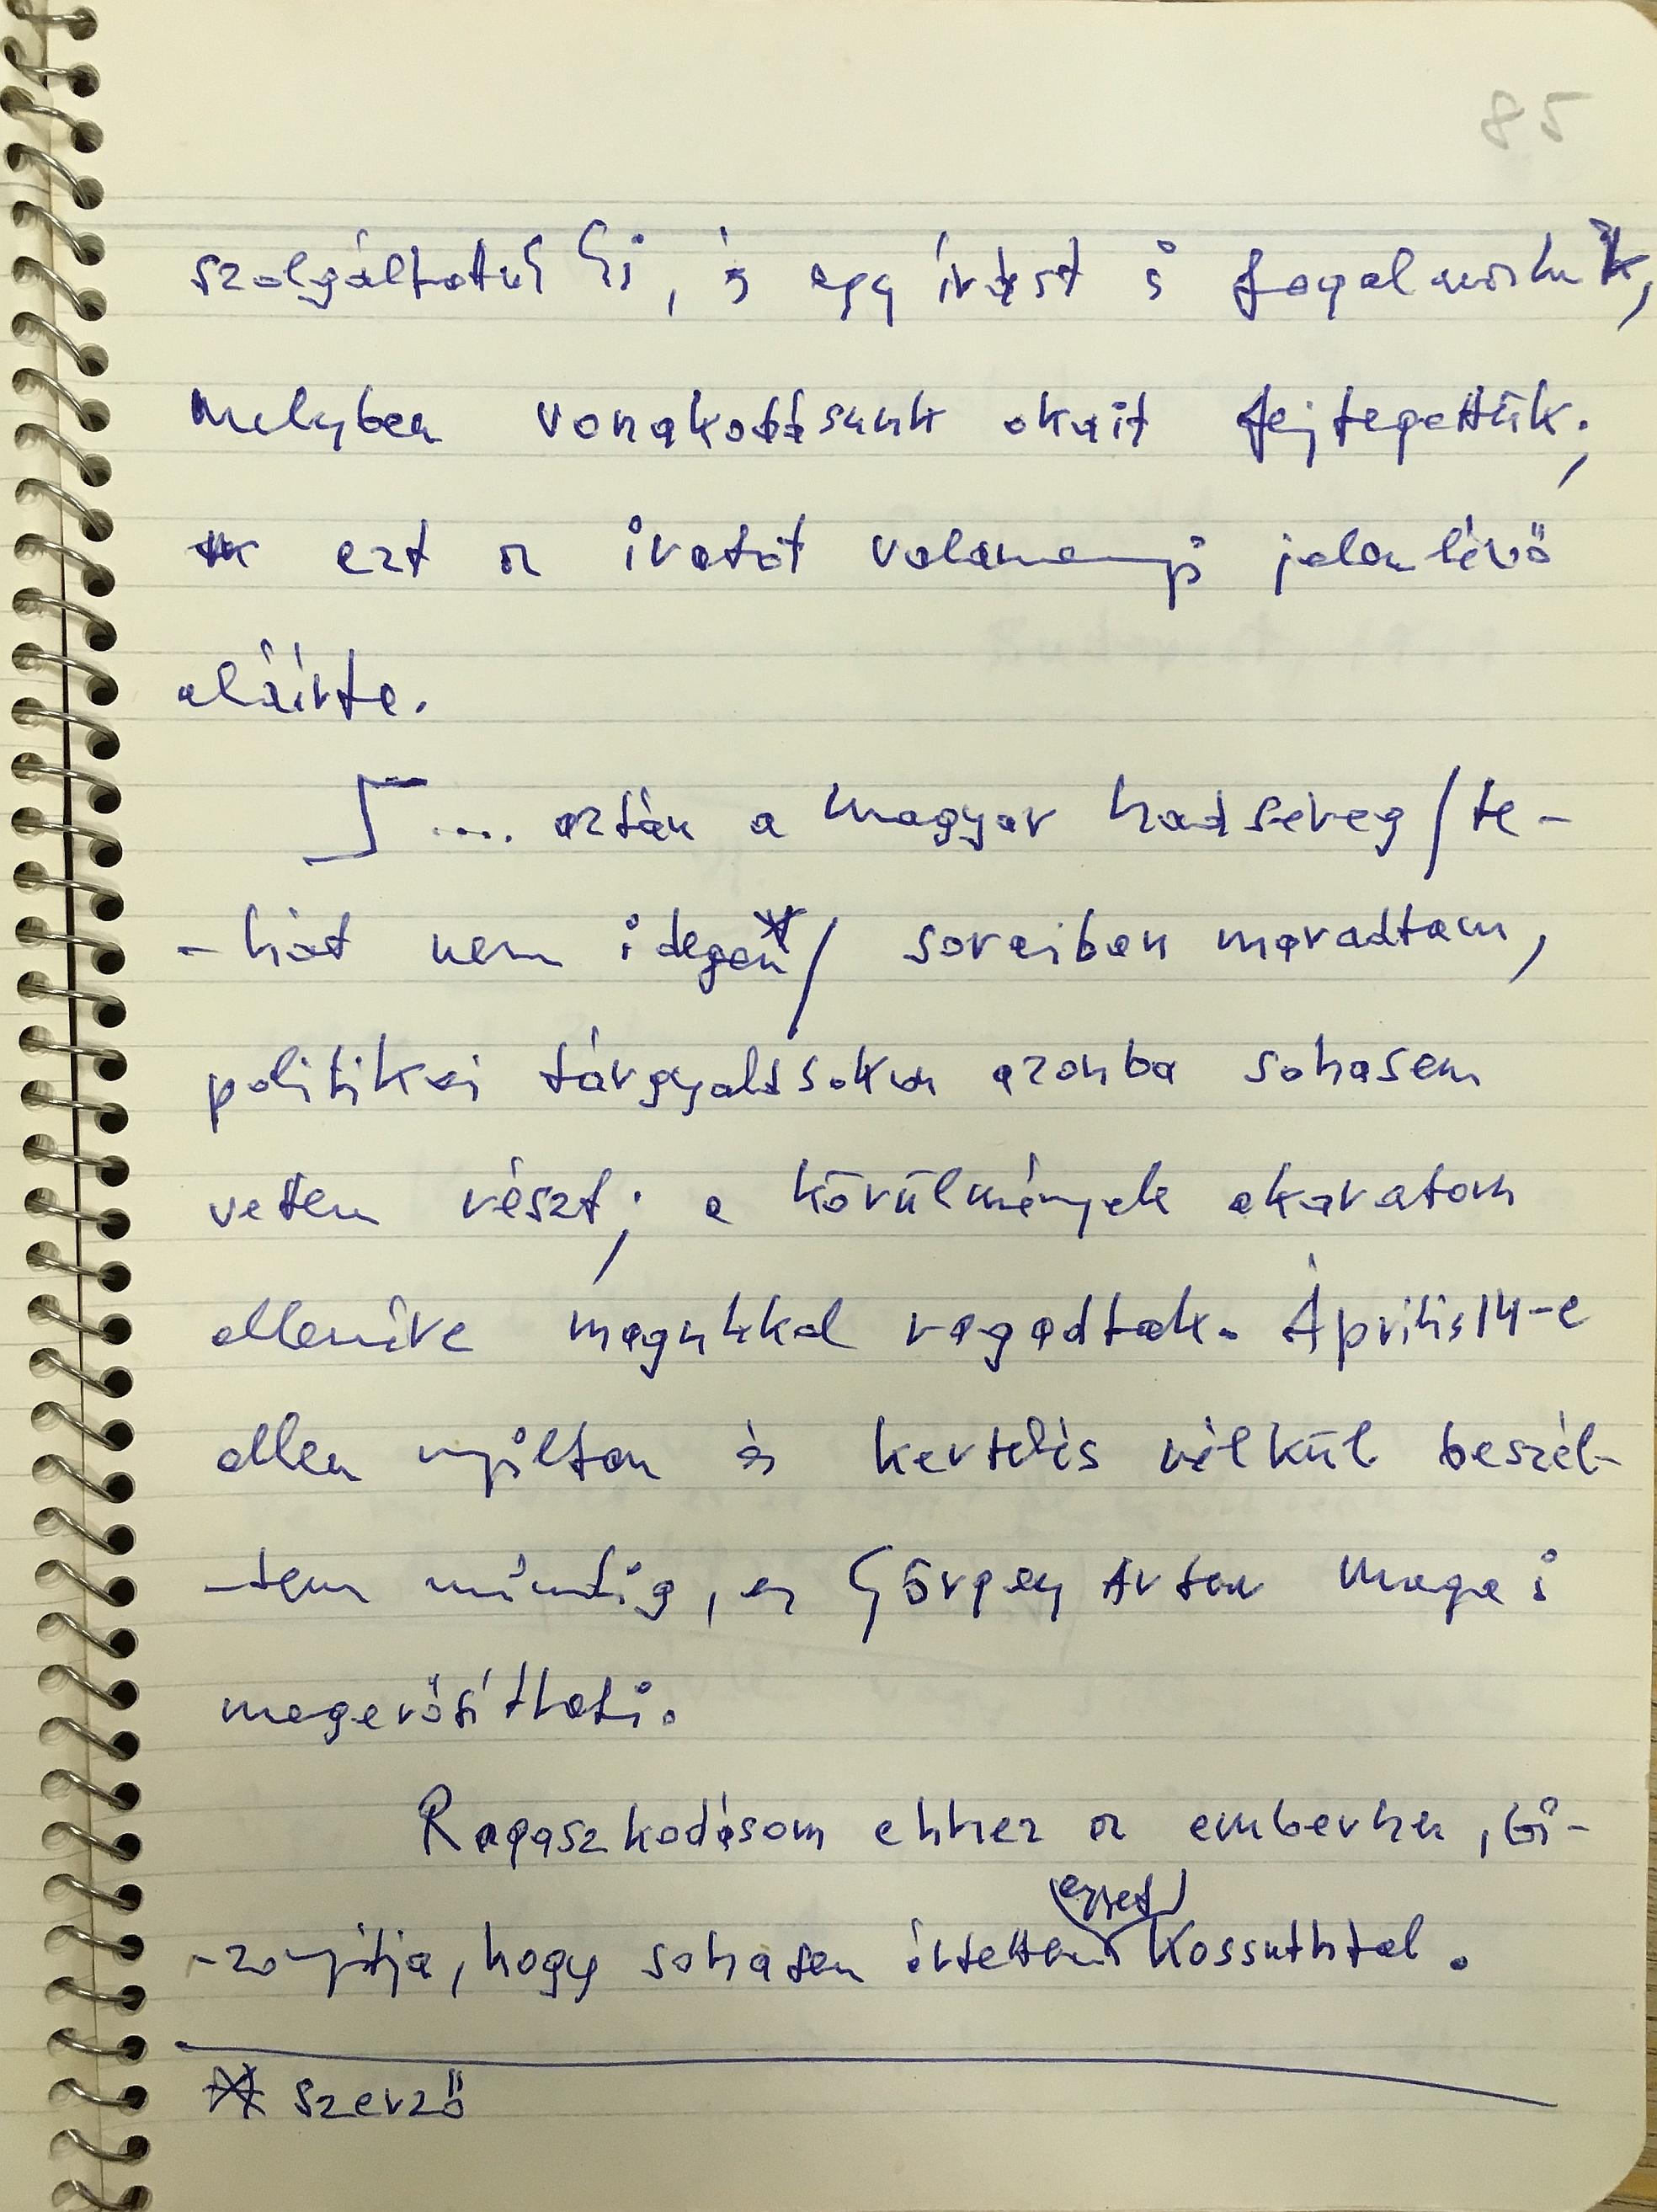 85
szolgáltatuk ki, és egy írást is fogalmaztunk,
melyben vonakodásunk okait fejtegettük;
ezt az iratot valamennyi jelenlévő
aláírta.
.... aztán a magyar hadsereg /te-
-hát nem idegen*/ soraiban maradtam,
politikai tárgyalásokon azonba sohasem
vettem részt; a körülmények akaratom
ellenére magukkal ragadtak. Április 14-e
ellen nyíltan és kertelés nélkül beszél-
-tem mindig, ez Görgey Artur maga is
megerősítheti.
Ragaszkodásom ehhez az emberhez, bi-
(egyet)
-zonyítja, hogy sohasem értettem Kossuthtal.
* szerző